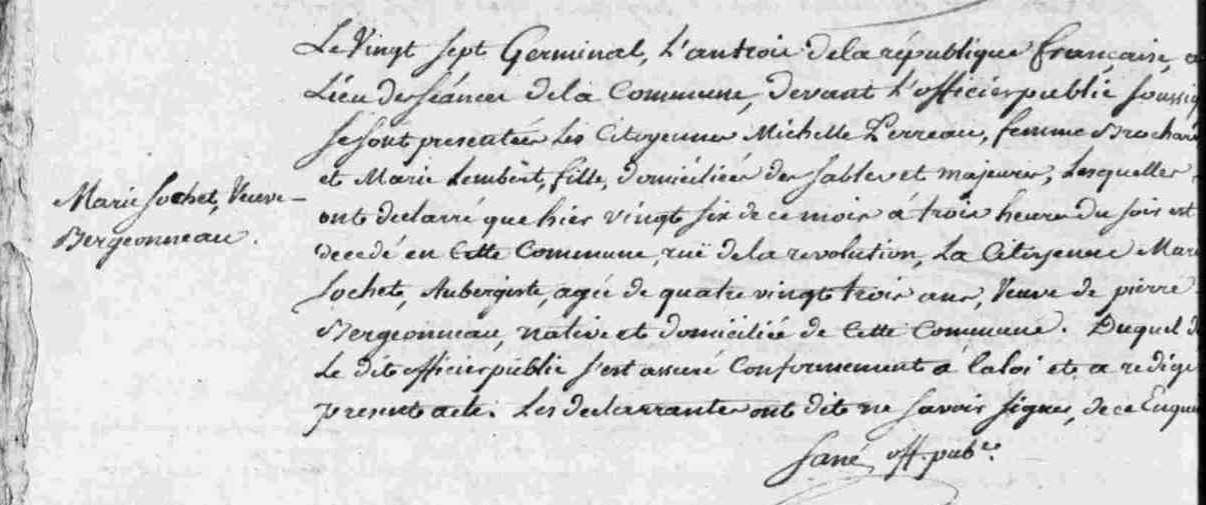 Le Vingt sept Germinal, L'an trois de la république française, a
Lieu des séances de la Commune, devant L'officier public soussig
se sont presentées les Citoyennes Michelle Perreau, femme Brochard
Marie Sochet, Veuve
et Marie Lembert, fille, domiciliées des Sables et majeures, Lesquelles
Bergeonneau.
ont declarré que hier vingt six de ce mois à trois heures du soir est
decedé en Cette Commune, ruë de la revolution, La Citoyenne Marie
Sochet, Aubergiste, agée de quatre vingt trois ans, Veuve de pierre
Bergeonneau, native et domiciliée de Cette Commune. Duquel d
Le dit officier public s'est assuré Conformement à la loi et a redigé
present acte. Les declarrantes ont dit ne savoir signer, de ce Enquis
Sané off. pub.